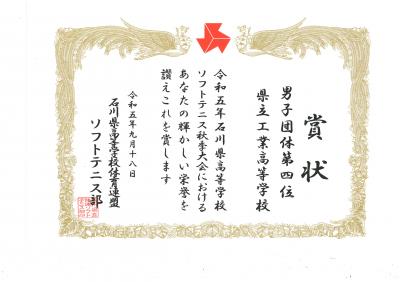 賞状
男子団体第四位
県立工業高等学校
令和五年石川県高等学校
ソフトテニス秋季大会における
あなたの輝かしい栄誉を
讃えこれを賞します
令和五年九月十八日
石川県高等学校体育連盟
ソフトテニス部